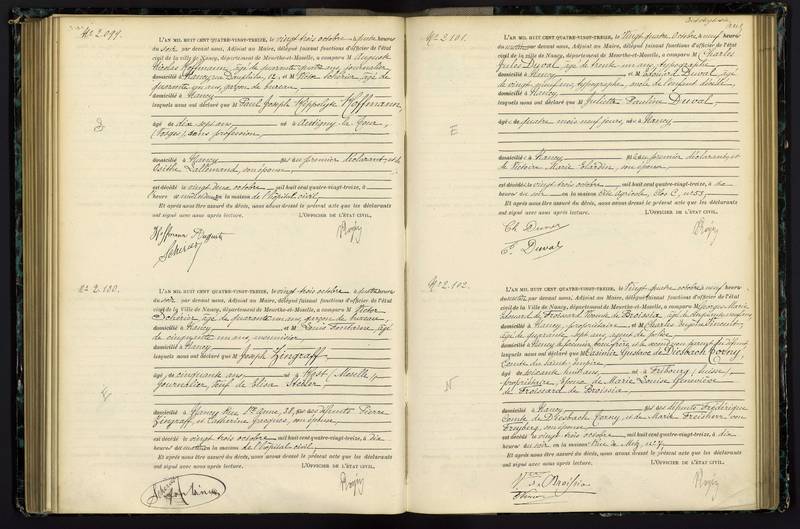 No 2.099.
L'AN MIL HUIT CENT QUATRE-VINGT-TREIZE, le vingt trois octobre à quatre heures
du soir par devant nous, Adjoint au Maire, délégué faisant fonctions d'officier de l'état
civil de la ville de Nancy, département de Meurthe-et-Moselle, a comparu M Auguste
Nicolas Hoffmann, âgé de quarante quatre ans, journalier,
domicilié à Nancy, 12, et M Victor Scherier, âgé de
quarante un ans, garçon de bureau,
domicilié à Nancy
lesquels nous ont déclaré que M Paul Joseph Hippolyte Hoffmann,
âgé de dix sept ans né à Autigny la Tour,
(Vosges), sans profession
domicilié à Nancy fils du premier déclarant et de
Lallemand, son épouse
est décédé le vingt deux octobre mil huit cent quatre-vingt-treize, à
heure en la maison de l'hôpital civil,
Et après nous être assuré du décès, nous avons dressé le présent acte que les déclarants
ont signé avec nous après lecture. L'OFFICIER DE L'ÉTAT CIVIL,
Hoffmann Auguste
Scherier
No 2.100.
L'AN MIL HUIT CENT QUATRE-VINGT-TREIZE, le vingt trois octobre à quatre heures
du soir par devant nous, Adjoint au Maire, délégué faisant fonctions d'officier de l'état
civil de la Ville de Nancy, département de Meurthe-et-Moselle, a comparu M Victor
Scherier, âgé de quarante un ans, garçon de bureau,
domicilié à Nancy et M Louis Fontaine, âgé
de cinquante ans, menuisier
domicilié à Nancy
lesquels nous ont déclaré que M Joseph Zingraff,
âgé de cinquante ans né à Host (Moselle),
journalier, veuf de Elisa
domicilié à Nancy Rue Ste Anne, 28, fils des défunts Pierre
Zingraff, et Catherine Jacques, son épouse
est décédé le vingt trois octobre mil huit cent quatre-vingt-treize, à dix
heures du matin en la maison de l'hôpital civil,
Et après nous être assuré du décès, nous avons dressé le présent acte que les déclarants
ont signé avec nous après lecture. L'OFFICIER DE L'ÉTAT CIVIL,
Scherier
Fontaine
No 2.101.
L'AN MIL HUIT CENT QUATRE-VINGT-TREIZE, le vingt quatre octobre à neuf heures
du matin par devant nous, Adjoint au Maire, délégué faisant fonctions d'officier de l'état
civil de la ville de Nancy, département de Meurthe-et-Moselle, a comparu M Charles
Jules Duval, âgé de trente un ans, typographe,
domicilié à Nancy et M Edouard Duval, âgé
de vingt neuf ans, typographe, oncle de l'enfant décédé
domicilié à Nancy
lesquels nous ont déclaré que M Juliette Pauline Duval,
âgée de quatre mois neuf jours, née à Nancy
domicilié à Nancy fille du premier déclarant, et
de Victoire Marie son épouse,
est décédé le vingt trois octobre mil huit cent quatre-vingt-treize, à dix
heures du soir en la maison Cité Agricole, Clos C, no 53,
Et après nous être assuré du décès, nous avons dressé le présent acte que les déclarants
ont signé avec nous après lecture. L'OFFICIER DE L'ÉTAT CIVIL,
Ch Duval
E. Duval
E
No 2.102.
L'AN MIL HUIT CENT QUATRE-VINGT-TREIZE, le vingt quatre octobre à neuf heures
du matin par devant nous, Adjoint au Maire, délégué faisant fonctions d'officier de l'état
civil de la Ville de Nancy, département de Meurthe-et-Moselle, a comparu M Marie
Edouard de Froissard Vicomte de Broissia, âgé de
domicilié à Nancy, propriétaire et M Charles
âgé de quarante sept ans, agent de police,
domicilié à Nancy
lesquels nous ont déclaré que M Casimir Gustave de Diesbach Torny,
Comte du Saint Empire
âgé de soixante huit ans né à Fribourg (Suisse)
propriétaire, époux de Marie Louise Geneviève
de Froissard de Broissia
domicilié à Nancy fils des défunts Frédérique
Comte de Diesbach Torny, et de Marie
Freyberg, son épouse
est décédé le vingt trois octobre mil huit cent quatre-vingt-treize, à dix
heures du soir en la maison Rue de Metz, no 27,
Et après nous être assuré du décès, nous avons dressé le présent acte que les déclarants
ont signé avec nous après lecture. L'OFFICIER DE L'ÉTAT CIVIL,
Vte de Broissia
N